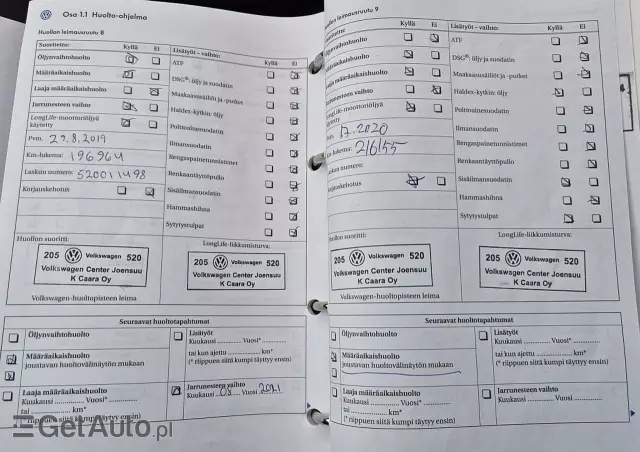 Osa 1.1 Huolto-ohjelma
Huollon leimausruutu 8
Suoritettu: Kyllä Ei
Öljynvaihtohuolto
Määräaikaishuolto
Laaja määräaikaishuolto
Jarrunesteen vaihto
LongLife-moottoriöljyä
käytetty
Pvm. 29.8.2019
Km-lukema: 196964
Laskun numero: 520011498
Korjauskehotus
Lisätyöt – vaihto: Kyllä Ei
ATF
DSG®: öljy ja suodatin
Maakaasusäiliöt ja -putket
Haldex-kytkin: öljy
Polttoainesuodatin
Ilmansuodatin
Rengaspainetunnistimet
Renkaantäyttöpullo
Sisäilmansuodatin
Hammashihna
Sytytystulpat
Huollon suoritti:
LongLife-liikkumisturva:
205 Volkswagen 520
Volkswagen Center Joensuu
K Caara Oy
205 Volkswagen 520
Volkswagen Center Joensuu
K Caara Oy
Volkswagen-huoltopisteen leima
Seuraavat huoltotapahtumat
Öljynvaihtohuolto
Määräaikaishuolto
joustavan huoltovälinäytön mukaan
Laaja määräaikaishuolto
Kuukausi Vuosi*
tai km*
(* riippuen siitä kumpi täyttyy ensin)
Lisätyöt
Kuukausi Vuosi*
tai kun ajettu km*
(* riippuen siitä kumpi täyttyy ensin)
Jarrunesteen vaihto
Kuukausi 08 Vuosi 2021
Huollon leimausruutu 9
Kyllä Ei
Öljynvaihtohuolto
Määräaikaishuolto
Laaja määräaikaishuolto
Jarrunesteen vaihto
LongLife-moottoriöljyä
käytetty
Km-lukema: 216155
Laskun numero:
Korjauskehotus
Lisätyöt – vaihto: Kyllä Ei
ATF
DSG®: öljy ja suodatin
Maakaasusäiliöt ja -putket
Haldex-kytkin: öljy
Polttoainesuodatin
Ilmansuodatin
Rengaspainetunnistimet
Renkaantäyttöpullo
Sisäilmansuodatin
Hammashihna
Sytytystulpat
Huollon suoritti:
LongLife-liikkumisturva:
205 Volkswagen 520
Volkswagen Center Joensuu
K Caara Oy
205 Volkswagen 520
Volkswagen Center Joensuu
K Caara Oy
Volkswagen-huoltopisteen leima
Seuraavat huoltotapahtumat
Öljynvaihtohuolto
Määräaikaishuolto
joustavan huoltovälinäytön mukaan
Laaja määräaikaishuolto
Kuukausi Vuosi*
tai km*
(* riippuen siitä kumpi täyttyy ensin)
Lisätyöt
Kuukausi Vuosi*
tai kun ajettu km*
(* riippuen siitä kumpi täyttyy ensin)
Jarrunesteen vaihto
Kuukausi Vuosi
GetAuto.pl